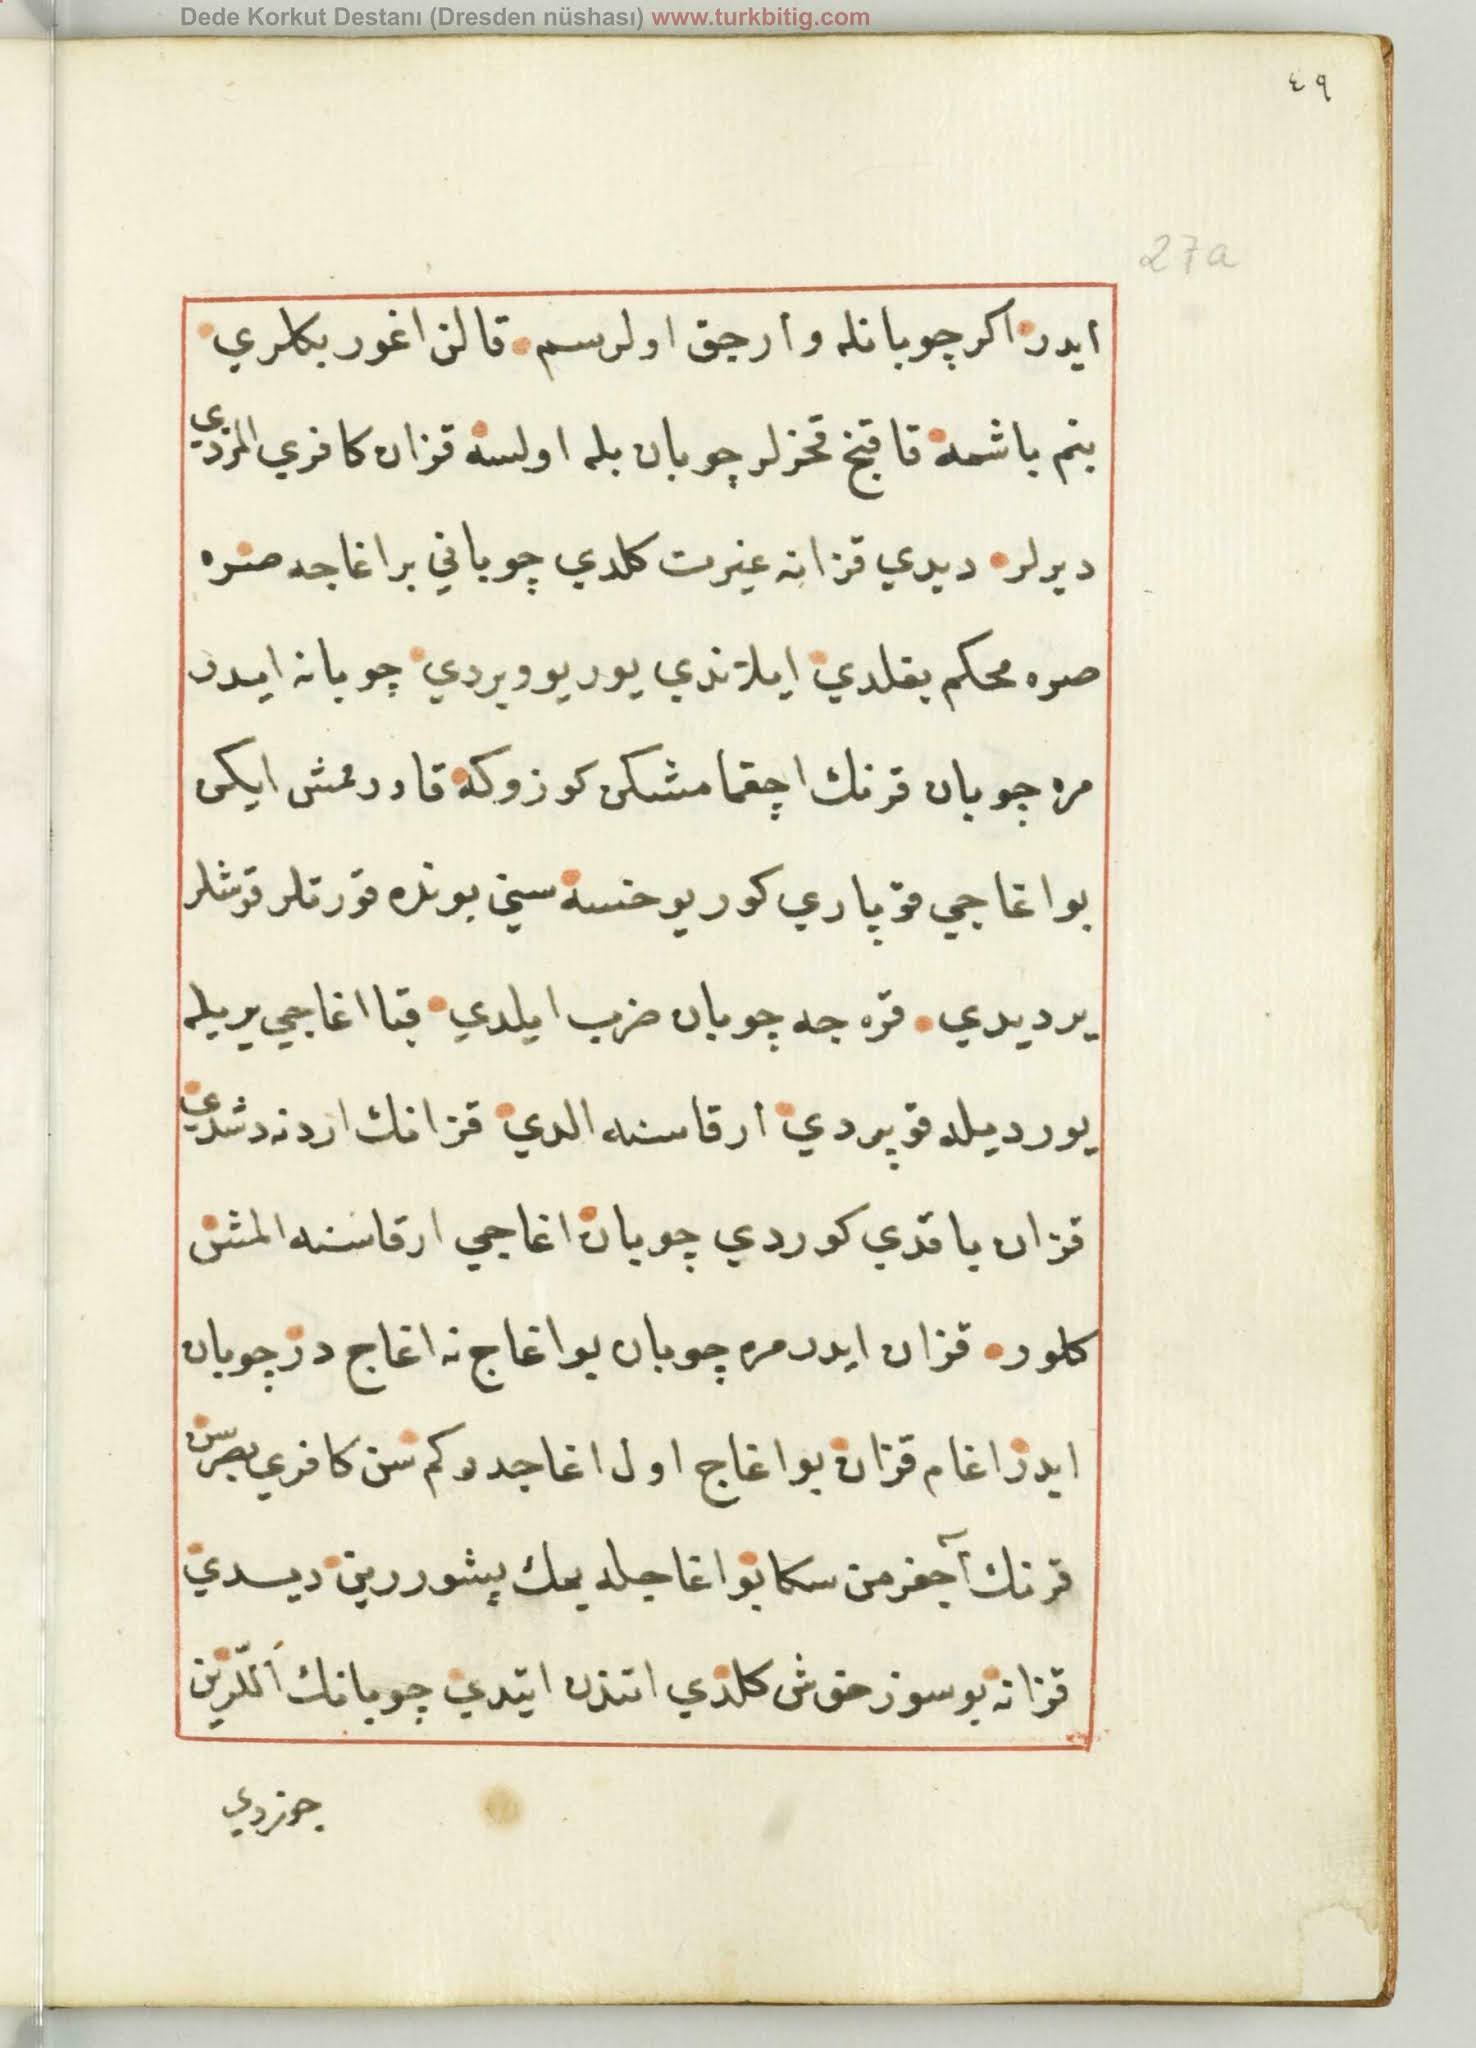 Dede Korkut Destanı (Dresden nüshası) www.turkbitig.com
٤٩
27a
ايدر اكر چوبانله وارجق اولرسم قالن اغوز بكلري
بنم باشمه قاقنخ قخرلر چوبان بله اولسه قزان كافري المزدي
ديرلر ديدي قزانه غيرت كلدي چوباني بر اغاجه صره
صره محكم بغلدي ايلاندي يوريو ويردي چوبانه ايدر
مره چوبان قرنك اچقمامشكن كوزوكه قاررمش ايكن
بو اغاجي قوپاري كور يوخسه سني بونده قورتلر قوشلر
ير ديدي قره جه چوبان ضرب ايلدي قبا اغاجي يريله
يورديله قوپردي ارقاسنه الدي قزانك اردنه دشدي
قزان باقدي كوردي چوبان اغاجي ارقاسنه المش
كلور قزان ايدر مره چوبان بو اغاج نه اغاج در چوبان
ايدر اغام قزان بو اغاج اول اغاجدر كم سن كافري بصرسن
قرنك آجغر من سكا بو اغاجله يمك پشوررين ديدي
قزانه بو سوز خوش كلدي اتندن ايندي چوبانك اللرين
چوزدي